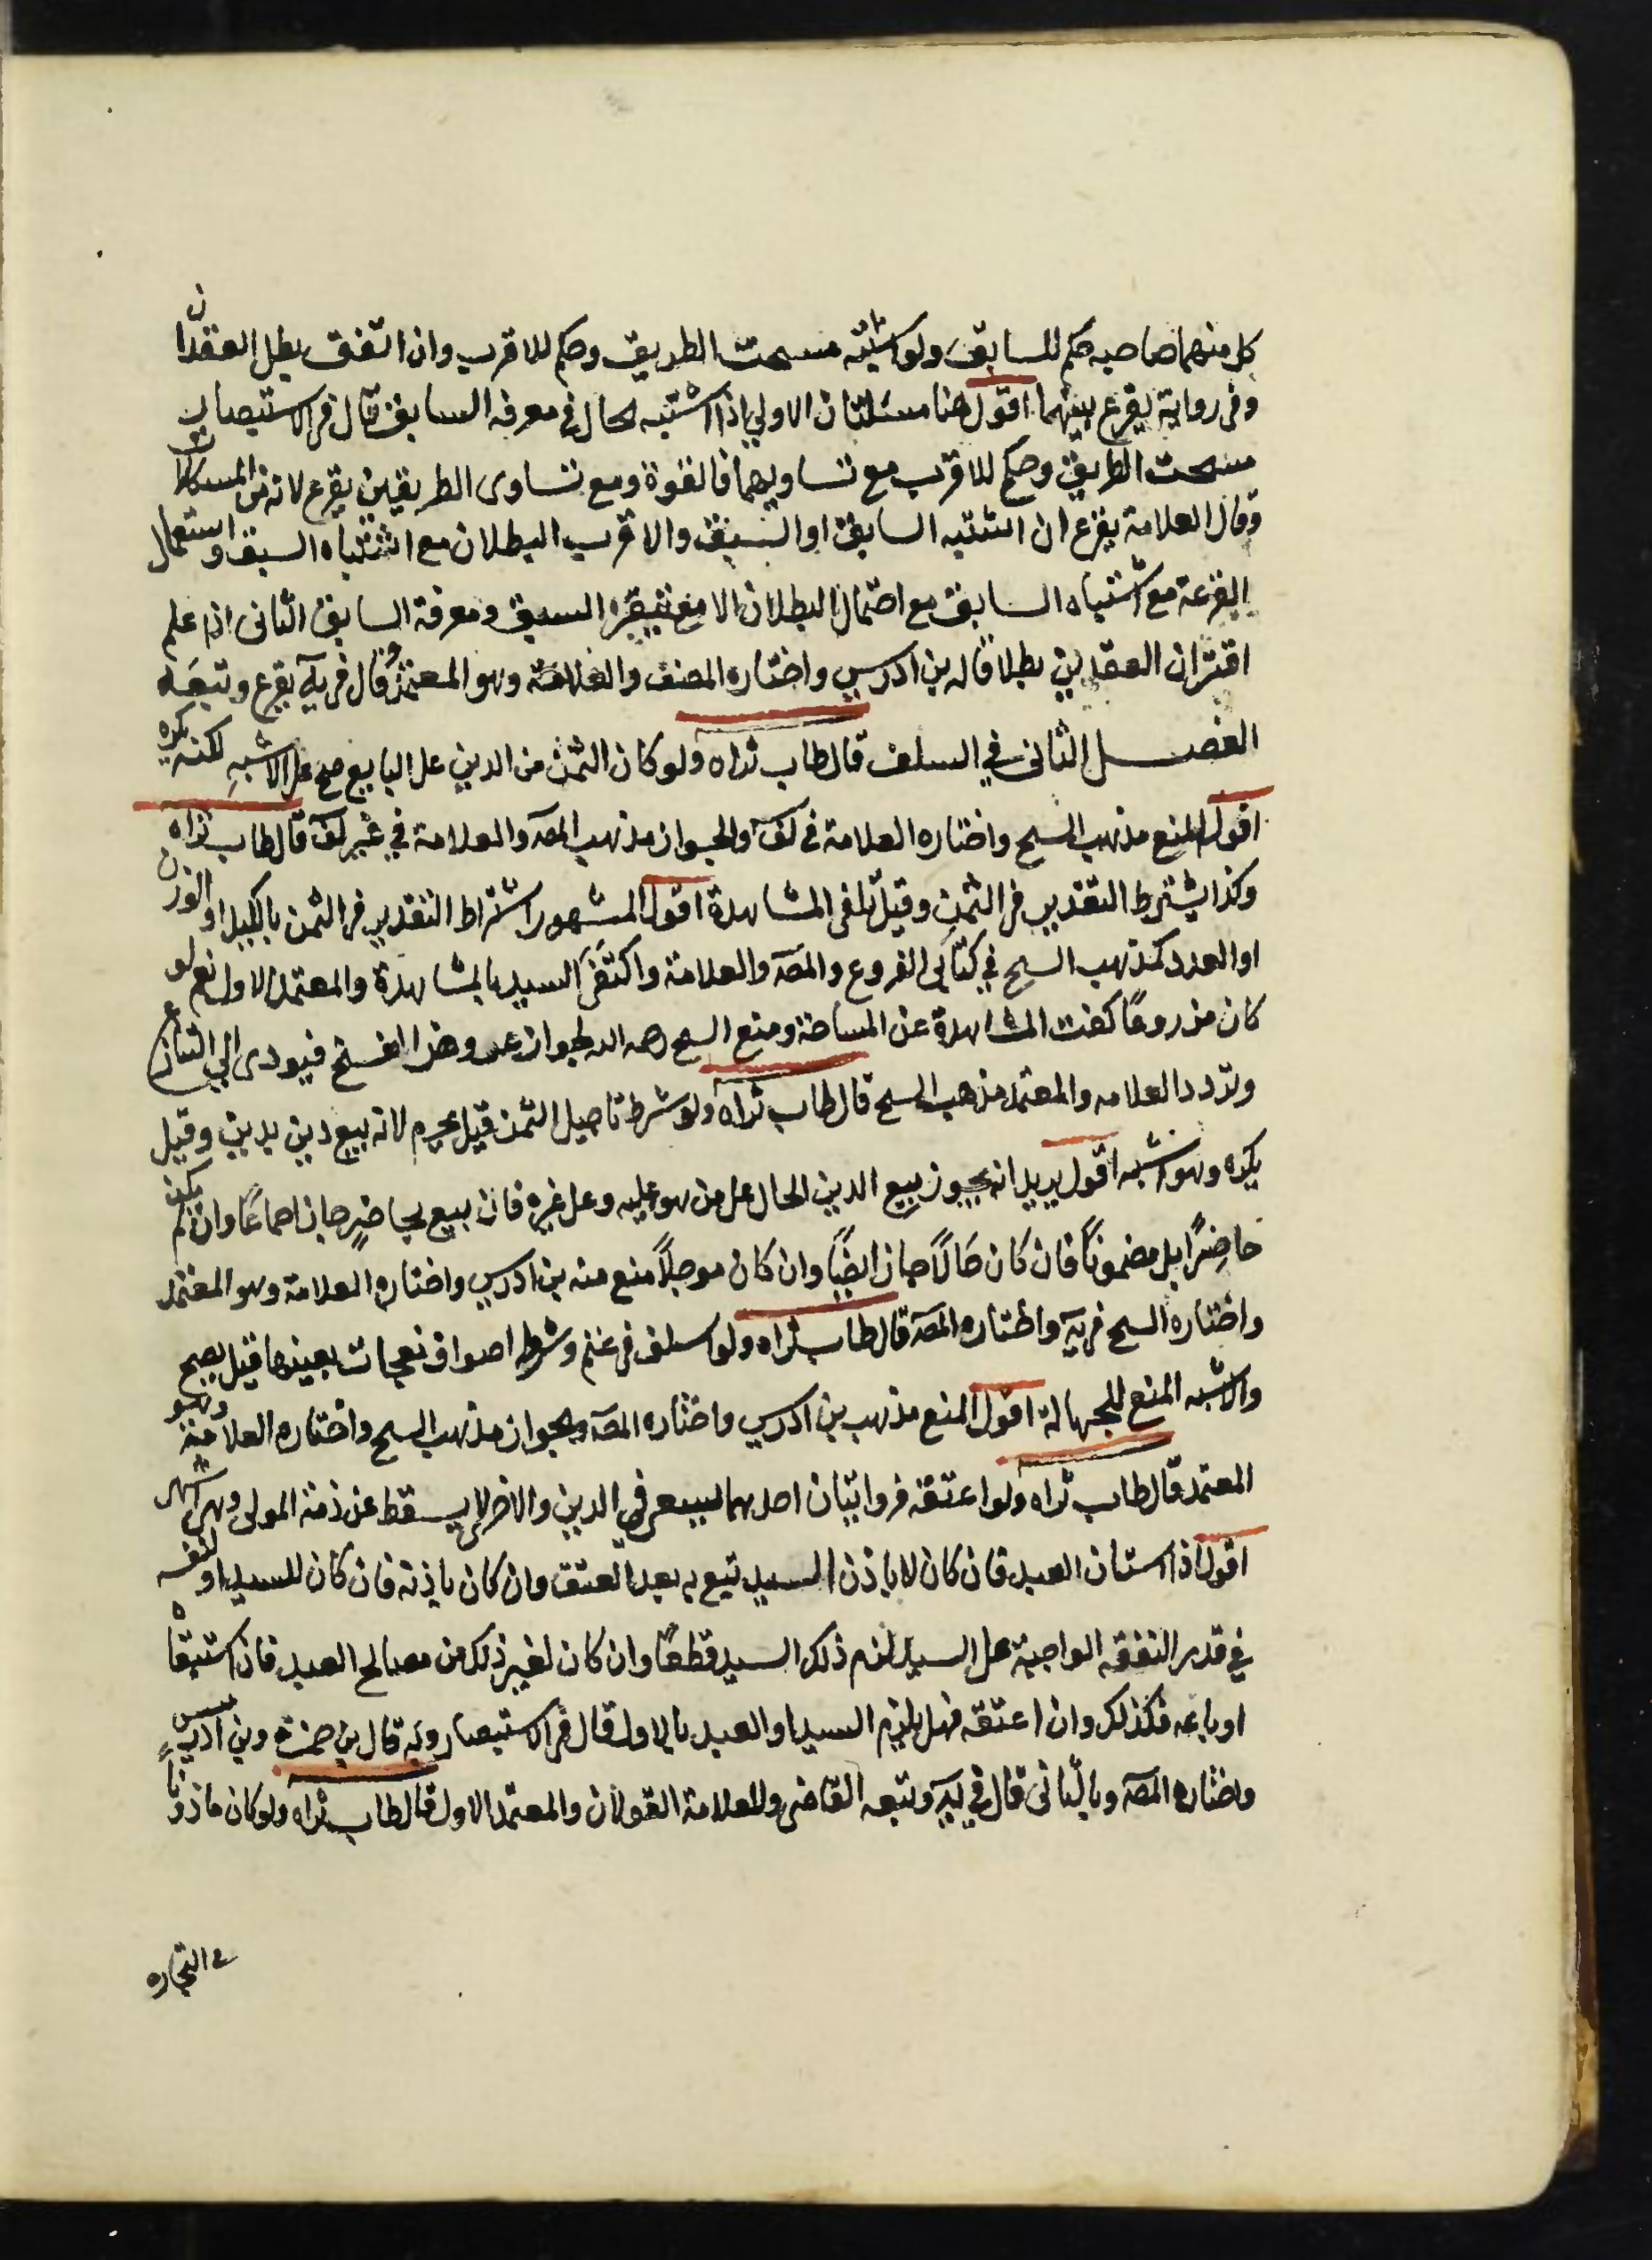 كل منهما صاحبه حكم للسابق ولو اشتبه مسحت الطريق وحكم للاقرب وان اتفق بطل العقدان
وفي رواية يقرع بينهما اقول هنا مسئلتان الاولى اذا اشتبه الحال في معرفة السابق قال في الاستبصار
مسحت الطريق وحكم للاقرب مع تساويهما في القوة ومع تساوى الطريقين يقرع لانه من المشكلات
وقال العلامة يقرع ان اشتبه السابق او السبق والاقرب البطلان مع اشتباه السبق واستعمال
القرعة مع اشتباه السابق مع احتمال البطلان الا مع السبق ومعرفة السابق الثانى اذا علم
اقتران العقدين بطلا قاله بن ادريس واختاره المصنف والعلامة وهو المعتمد وقال في يه يقرع وتبعه
الفصــل الثانى في السلف قال طاب ثراه ولو كان الثمن من الدين على البايع صح على الاشبه لكنه يكره
اقول المنع مذهب الشيخ واختاره العلامة في لف والجواز مذهب المصه والعلامة في غير لف قال طاب ثراه
وكذا يشترط التقدير في الثمن وقيل تلفى المشاهدة اقول المشهور اشتراط التقدير في الثمن بالكيل او الوزن
او العدد كمذهب الشيخ في كتابى الفروع والمصه والعلامة واكتفى السيد بالمشاهدة والمعتمد الاول نعم لو
كان مذروعًا كفت المشاهدة عن المساحة ومنع الشيخ فيودى الى التنازع
وتردد العلامه والمعتمد مذهب الشيخ قال طاب ثراه ولو شرط تاجيل الثمن قيل يحرم لانه بيع دين بدين وقيل
يكره وهو اشبه اقول يريد انه يجوز بيع الدين الحال على من هو عليه وعلى غيره فان بيع بحاضرٍ جاز اجماعًا وان لم يكن
حاضرًا بل مضمونًا فان كان حالًا جاز ايضًا وان كان موجلًا منع منه بن ادريس واختاره العلامة وهو المعتمد
واختاره الشيخ في يه واختاره المصه قال طاب ثراه ولو اسلف في غنم وشرط اصواف نعجات بعينها قيل يصح
والاشبه المنع للجهالة اقول المنع مذهب بن ادريس واختاره المصه والجواز مذهب الشيخ واختاره العلامة وهو
المعتمد قال طاب ثراه ولو اعتقه فروايتان احدهما يسعى في الدين والاخرى لا يسقط عن ذمة المولى وهى اشهر
اقول اذا استدان العبد فان كان لا باذن السيد تبع به بعد العتق وان كان باذنه فان كان للسيد او لنفسه
في قدر النفقه الواجبة على السيد لزم ذلك السيد قطعًا وان كان لغير ذلك من مصالح العبد فان استبقاه
او باعه فكذلك وان اعتقه فهل يلزم السيد او العبد بالاول قال في الاستبصار وبه قال بن حمزة وبن ادريس
واختاره المصه وبالثانى قال في يه وتبعه القاضى وللعلامة القولان والمعتمد الاول قال طاب ثراه ولو كان ماذونًا
في التجاره